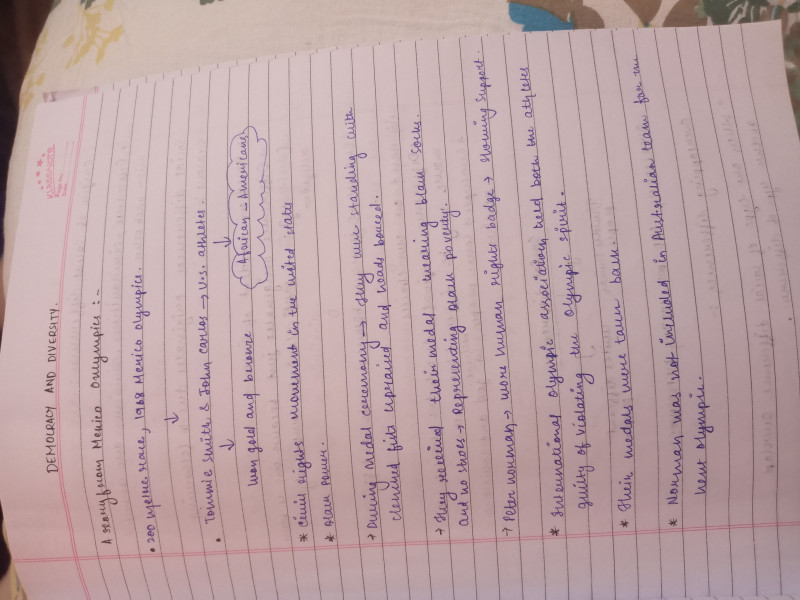 DEMOCRACY AND DIVERSITY.
A story from Mexico Olympics :-
• 200 metre race, 1968 Mexico Olympics.
↓
• Tommie Smith & John Carlos → U.S. athletes.
↓ ↓
Won gold and bronze African-Americans
* Civil rights movement in the united states
* Black Power.
→ During medal ceremony → They were standing with
clenched fists upraised and heads bowed.
→ They received their medal wearing black socks
and no shoes → Representing black poverty.
→ Peter norman → wore human rights badge → Showing support.
* International Olympic association held both the athletes
guilty of violating the Olympic spirit.
* Their medals were taken back.
* Norman was not included in Australian team for the
next olympic.